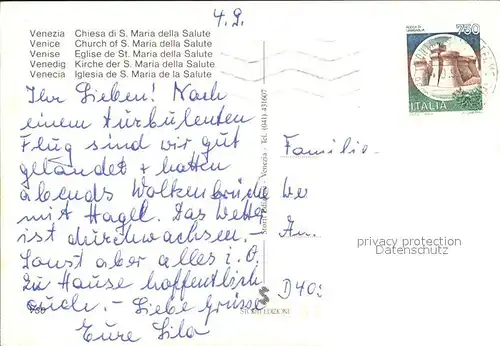 4.9.
Venezia Chiesa di S. Maria della Salute
Venice Church of S. Maria della Salute
Venise Eglise de St. Maria della Salute
Venedig Kirche der S. Maria della Salute
Venecia Iglesia de S. Maria de la Salute
750
ITALIA
Ihr Lieben! Nach
einem turbulenten
Flug sind wir gut
gelandet + hatten
abends Wolkenbrüche
mit Hagel. Das Wetter
ist durchwachsen. –
Sonst aber alles i. O.
Zu Hause hoffentlich
auch. – Liebe Grüsse
Eure Lilo
Venezia - Tel. (041) 931607
STORTI EDIZIONI
Familie
An
D 40
privacy protection
Datenschutz